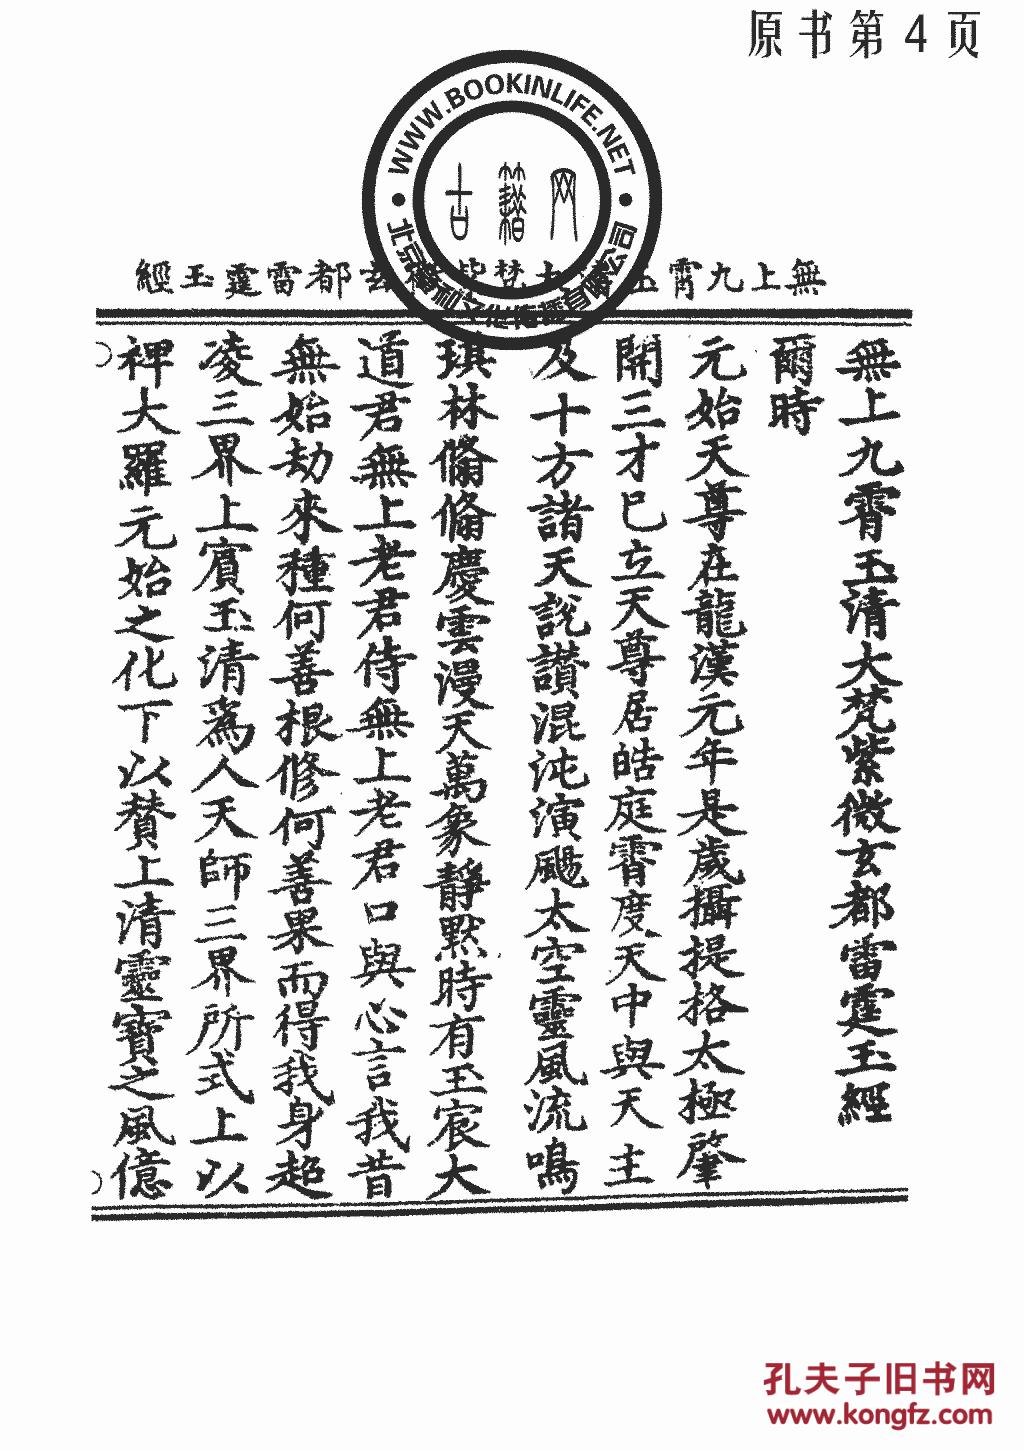 原书第4页
WWW.BOOKINLIFE.NET
古籍网
無上九霄玉清大梵紫微玄都雷霆玉經
無上九霄玉清大梵紫微玄都雷霆玉經
爾時
元始天尊在龍漢元年是歲攝提格太極肇
開三才已立天尊居皓庭霄度天中與天主
及十方諸天說讚混沌演颺太空靈風流鳴
琪林翛翛慶雲漫天萬象靜默時有玉宸大
道君無上老君侍無上老君口與心言我昔
無始劫來種何善根修何善果而得我身超
凌三界上賓玉清爲人天師三界所式上以
裨大羅元始之化下以贊上清靈寶之風億
孔夫子旧书网
www.kongfz.com